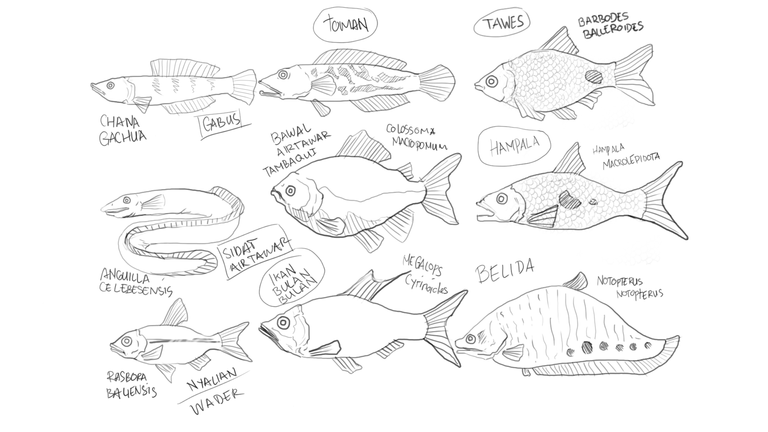 CHANA
GACHUA
GABUS
TOMAN
TAWES
BARBODES
BALLEROIDES
BAWAL
AIRTAWAR
TAMBAQUI
COLOSSOMA
MACROPOMUM
HAMPALA
HAMPALA
MACROLEPIDOTA
ANGUILLA
CELEBESENSIS
SIDAT
AIRTAWAR
IKAN
BULAN
BULAN
MEGALOPS
Cyprinoides
BELIDA
NOTOPTERUS
NOTOPTERUS
RASBORA
BALIENSIS
NYALIAN
WADER